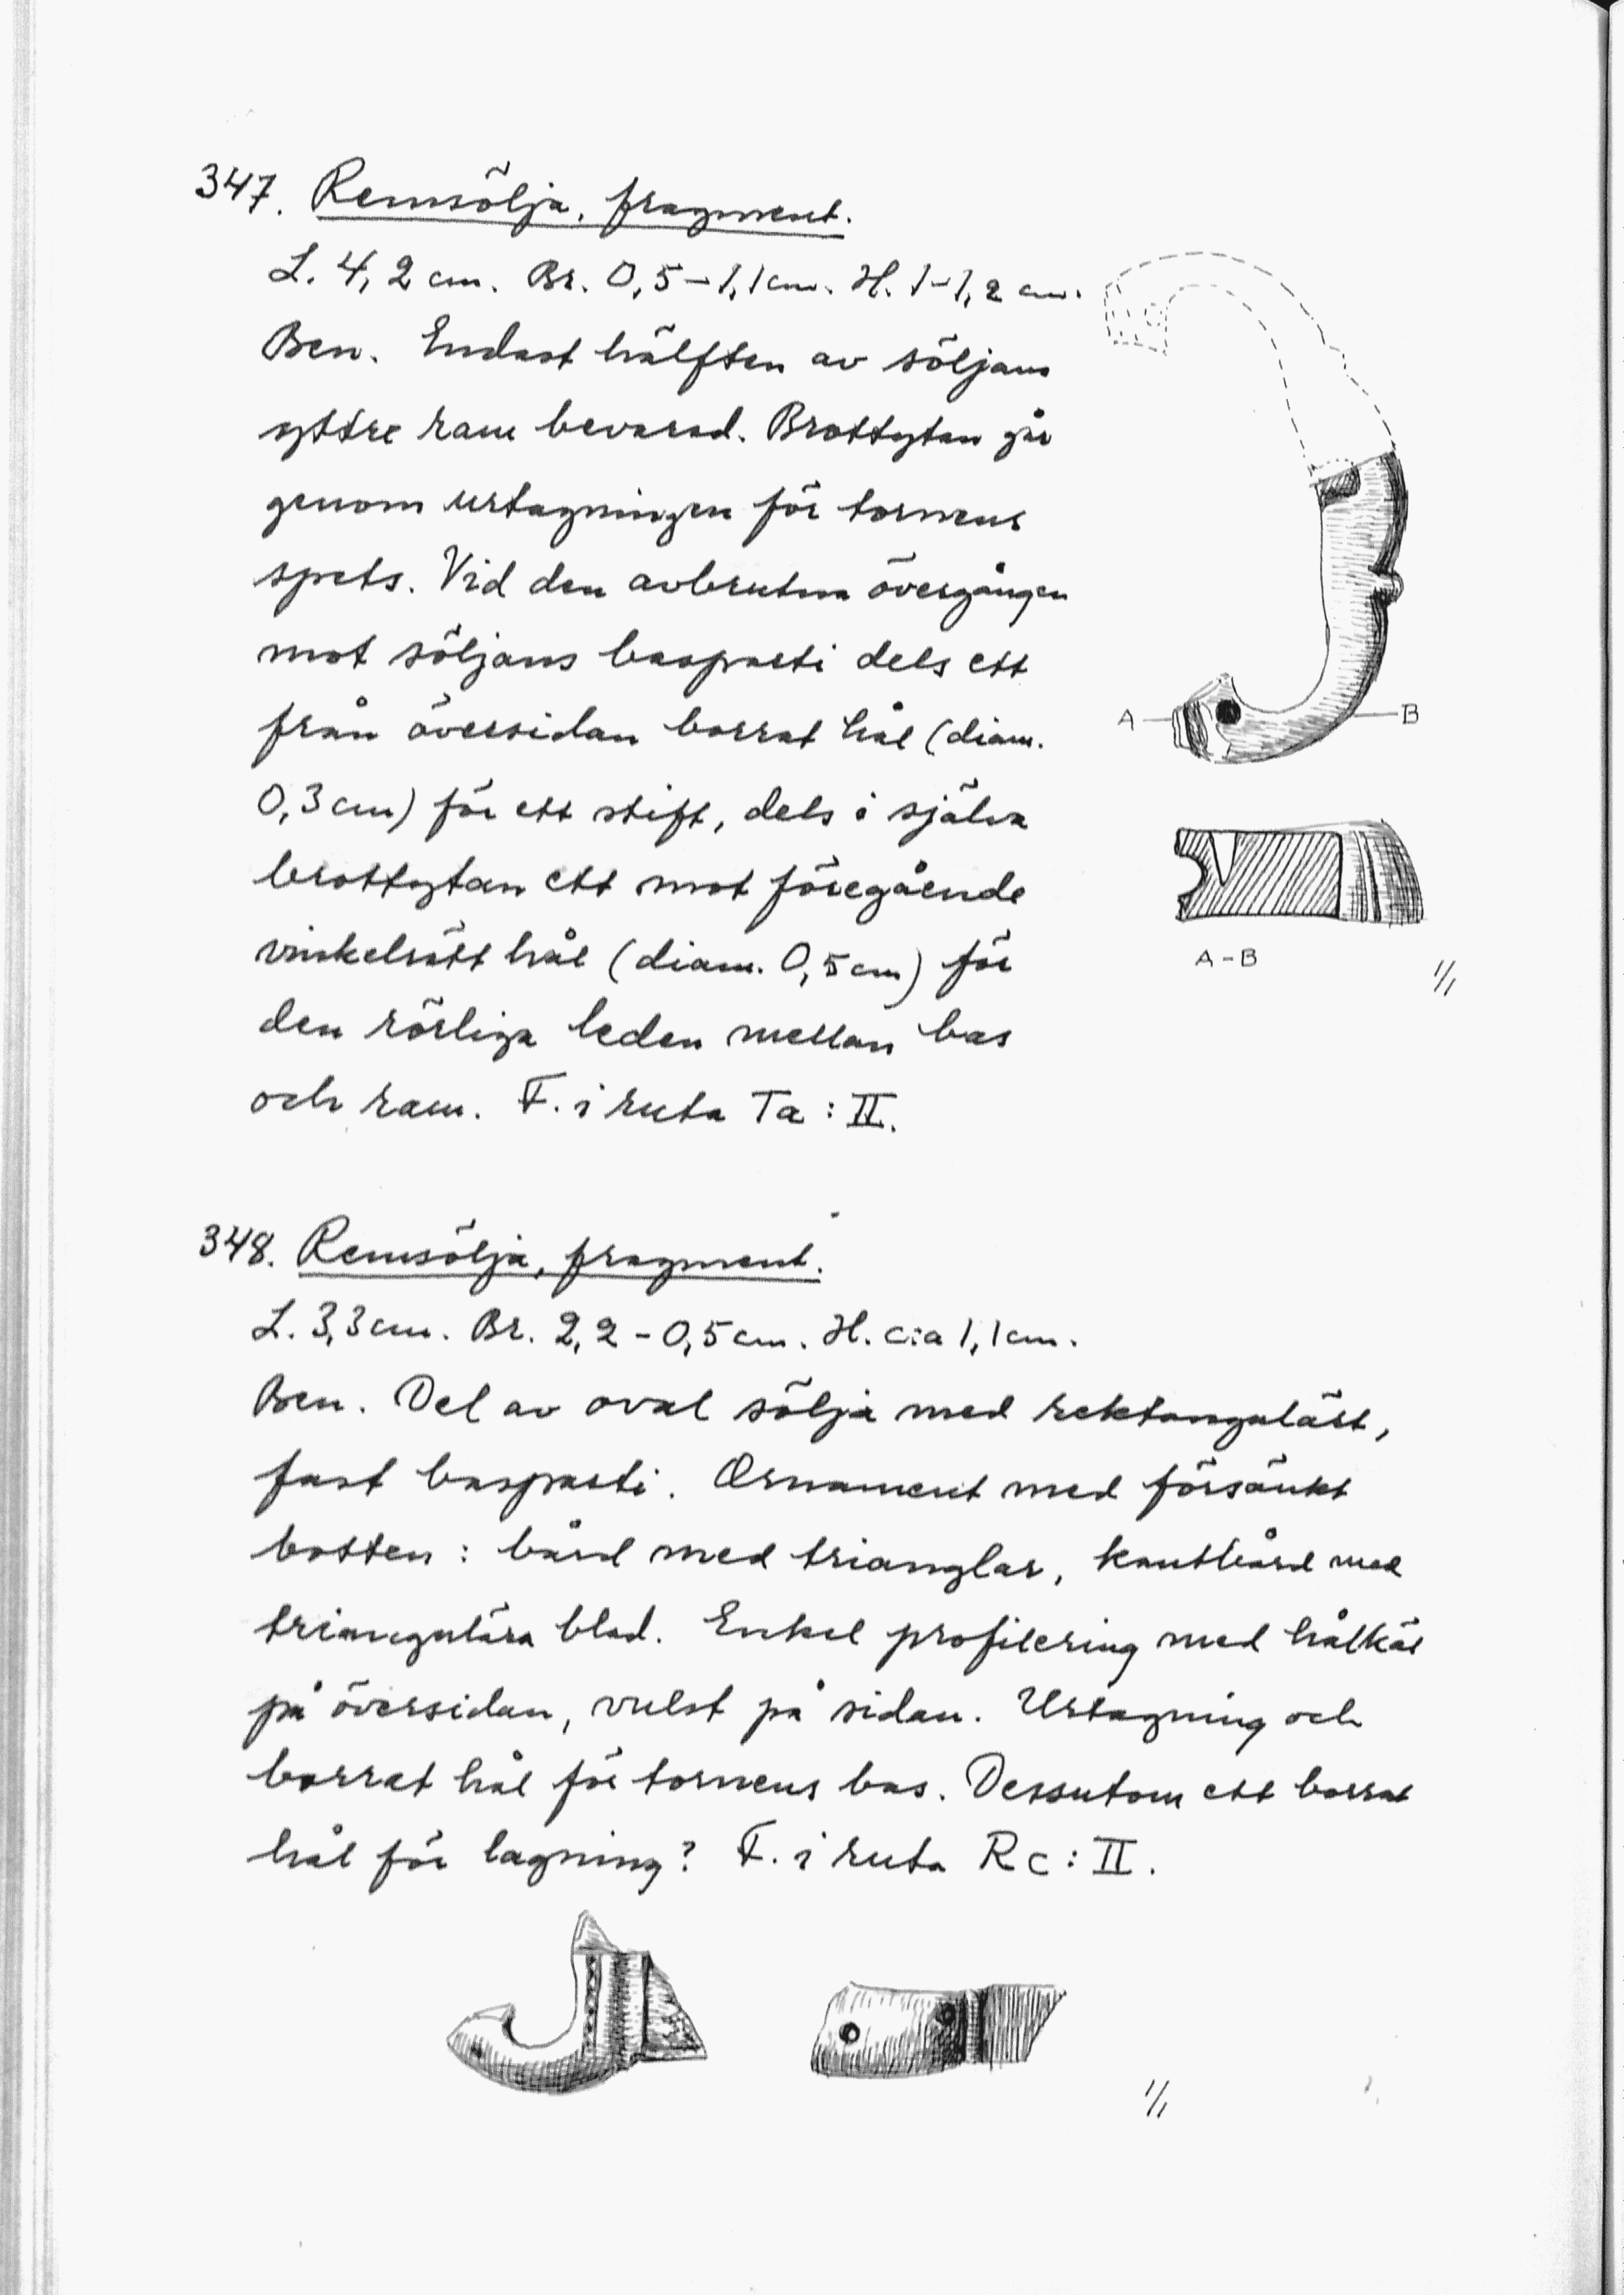 347. Remsölja, fragment.
L. 4,2 cm. Br. 0,5–1,1 cm. H. 1–1,2 cm.
Ben. Endast hälften av söljans
yttre ram bevarad. Brottytan går
genom urtagningen för tornens
spets. Vid den avbrutna övergången
mot söljans basparti dels ett
från översidan borrat hål (diam.
0,3 cm) för ett stift, dels i själva
brottytan ett mot föregående
vinkelrätt hål (diam. 0,5 cm) för
den rörliga leden mellan bas
och ram. F. i ruta Ta : II.
A
B
A–B
1/1
348. Remsölja, fragment.
L. 3,3 cm. Br. 2,2 – 0,5 cm. H. c:a 1,1 cm.
Ben. Del av oval sölja med rektangulärt,
fast basparti. Ornament med försänkt
botten : bård med trianglar, kantbård med
triangulära blad. Enkel profilering med hålkäl
på översidan, vulst på sidan. Urtagning och
borrat hål för tornens bas. Dessutom ett borrat
hål för lagning? F. i ruta Rc : II.
1/1